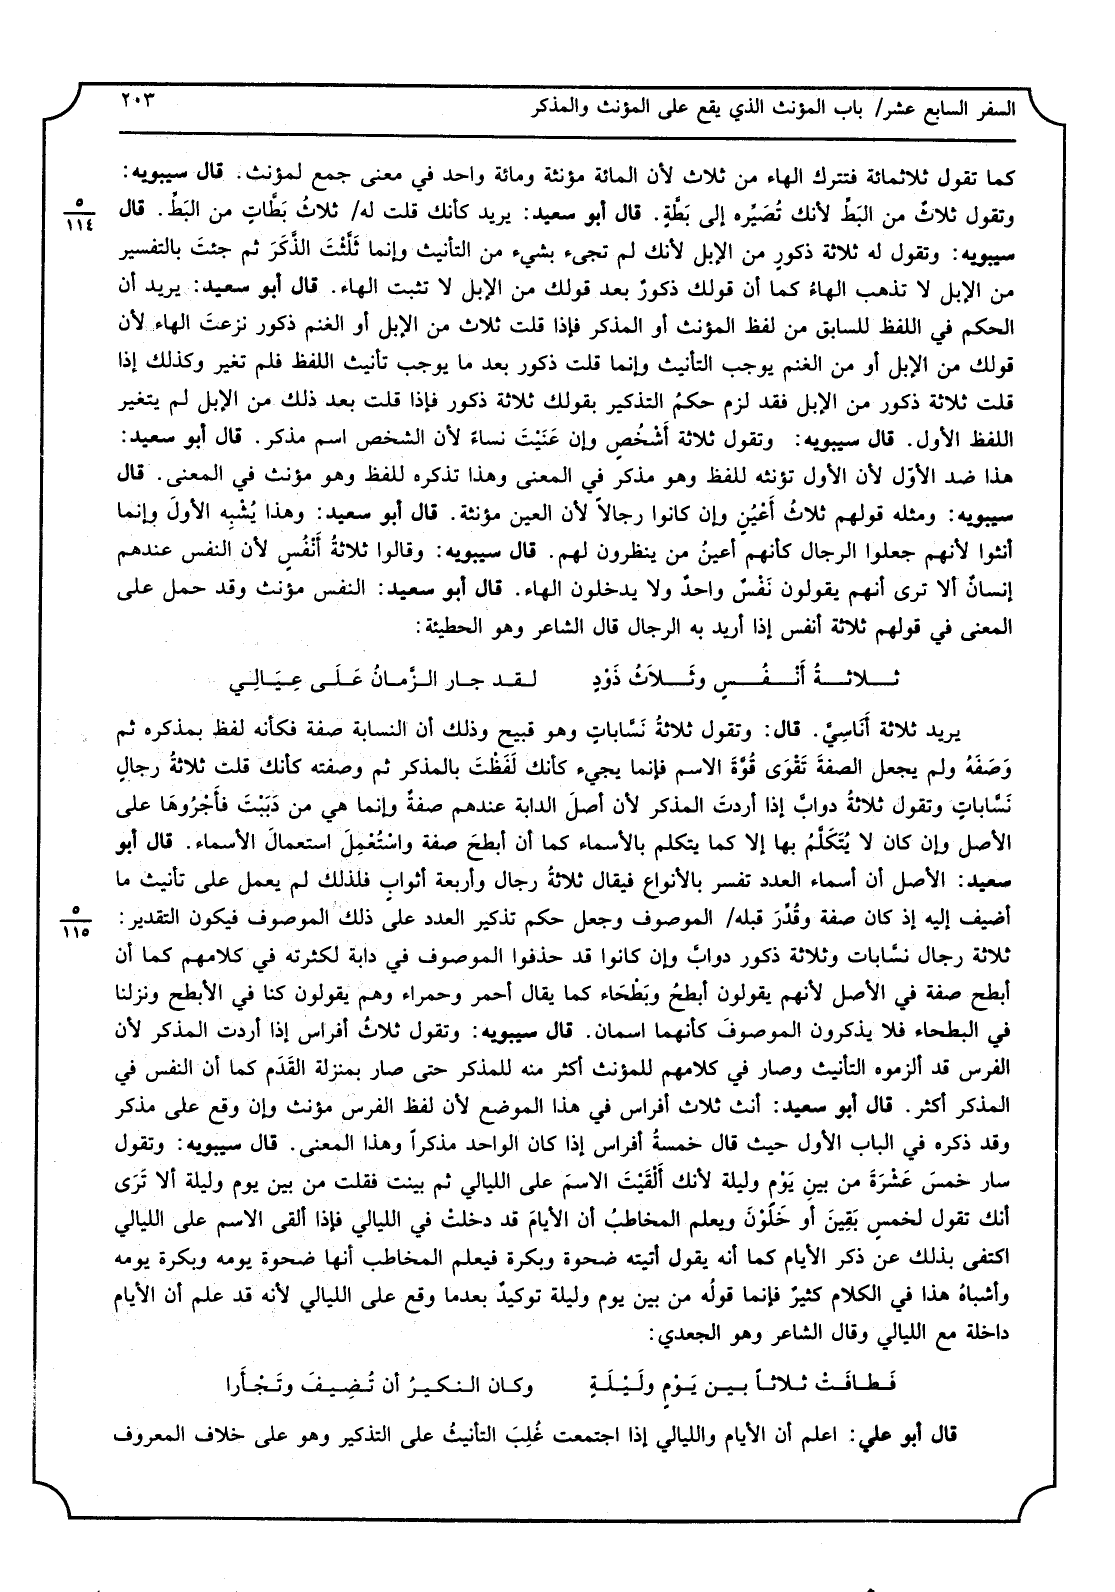 السفر السابع عشر/ باب المؤنث الذي يقع على المؤنث والمذكر ٢٠٣
كما تقول ثلاثمائة فتترك الهاء من ثلاث لأن المائة مؤنثة ومائة واحد في معنى جمع لمؤنث. قال سيبويه:
وتقول ثلاثٌ من البَطِّ لأنك تُصَيِّره إلى بَطَّةٍ. قال أبو سعيد: يريد كأنك قلت له/ ثلاثُ بَطَّاتٍ من البَطِّ. قال
٥
١١٤
سيبويه: وتقول له ثلاثة ذكورٍ من الإبل لأنك لم تجىء بشيء من التأنيث وإنما ثَلَّثْتَ الذَّكَرَ ثم جئتَ بالتفسير
من الإبل لا تذهب الهاءُ كما أن قولك ذكورٌ بعد قولك من الإبل لا تثبت الهاء. قال أبو سعيد: يريد أن
الحكم في اللفظ للسابق من لفظ المؤنث أو المذكر فإذا قلت ثلاث من الإبل أو الغنم ذكور نزعتَ الهاء لأن
قولك من الإبل أو من الغنم يوجب التأنيث وإنما قلت ذكور بعد ما يوجب تأنيث اللفظ فلم تغير وكذلك إذا
قلت ثلاثة ذكور من الإبل فقد لزم حكمُ التذكير بقولك ثلاثة ذكور فإذا قلت بعد ذلك من الإبل لم يتغير
اللفظ الأول. قال سيبويه: وتقول ثلاثة أَشْخُصٍ وإن عَنَيْتَ نساءً لأن الشخص اسم مذكر. قال أبو سعيد:
هذا ضد الأوّل لأن الأول تؤنثه للفظ وهو مذكر في المعنى وهذا تذكره للفظ وهو مؤنث في المعنى. قال
سيبويه: ومثله قولهم ثلاثُ أَعْيُنٍ وإن كانوا رجالاً لأن العين مؤنثة. قال أبو سعيد: وهذا يُشْبِه الأولَ وإنما
أنثوا لأنهم جعلوا الرجال كأنهم أعينُ من ينظرون لهم. قال سيبويه: وقالوا ثلاثةُ أَنْفُسٍ لأن النفس عندهم
إنسانٌ ألا ترى أنهم يقولون نَفْسٌ واحدٌ ولا يدخلون الهاء. قال أبو سعيد: النفس مؤنث وقد حمل على
المعنى في قولهم ثلاثة أنفس إذا أريد به الرجال قال الشاعر وهو الحطيئة:
ثــلاثــةُ أَنْــفُــسٍ وثَــلاَثُ ذَوْدٍ لـقـد جـار الـزَّمـانُ عَـلَـى عِـيَـالِـي
يريد ثلاثة أَنَاسِيَّ. قال: وتقول ثلاثةُ نَسَّاباتٍ وهو قبيح وذلك أن النسابة صفة فكأنه لفظ بمذكره ثم
وَصَفَهُ ولم يجعل الصفةَ تَقْوَى قُوَّةَ الاسم فإنما يجيء كأنك لَفَظْتَ بالمذكر ثم وصفته كأنك قلت ثلاثةُ رجالٍ
نَسَّاباتٍ وتقول ثلاثةُ دوابَّ إذا أردتَ المذكر لأن أصلَ الدابة عندهم صفةٌ وإنما هي من دَبَبْتَ فأَجْرُوهَا على
الأصل وإن كان لا يُتَكَلَّمُ بها إلا كما يتكلم بالأسماء كما أن أبطحَ صفة واسْتُعْمِلَ استعمالَ الأسماء. قال أبو
سعيد: الأصل أن أسماء العدد تفسر بالأنواع فيقال ثلاثةُ رجال وأربعة أثوابٍ فلذلك لم يعمل على تأنيث ما
أضيف إليه إذ كان صفة وقُدِّرَ قبله/ الموصوف وجعل حكم تذكير العدد على ذلك الموصوف فيكون التقدير:
٥
١١٥
ثلاثة رجال نسَّابات وثلاثة ذكور دوابَّ وإن كانوا قد حذفوا الموصوف في دابة لكثرته في كلامهم كما أن
أبطح صفة في الأصل لأنهم يقولون أبطحُ وبَطْحَاء كما يقال أحمر وحمراء وهم يقولون كنا في الأبطح ونزلنا
في البطحاء فلا يذكرون الموصوفَ كأنهما اسمان. قال سيبويه: وتقول ثلاثُ أفراس إذا أردت المذكر لأن
الفرس قد ألزموه التأنيث وصار في كلامهم للمؤنث أكثر منه للمذكر حتى صار بمنزلة القَدَم كما أن النفس في
المذكر أكثر. قال أبو سعيد: أنث ثلاث أفراس في هذا الموضع لأن لفظ الفرس مؤنث وإن وقع على مذكر
وقد ذكره في الباب الأول حيث قال خمسةُ أفراس إذا كان الواحد مذكراً وهذا المعنى. قال سيبويه: وتقول
سار خمسَ عَشْرَةَ من بينِ يَوْمٍ وليلة لأنك أَلْقَيْتَ الاسمَ على الليالي ثم بينت فقلت من بين يوم وليلة ألا تَرَى
أنك تقول لخمسٍ بَقِينَ أو خَلَوْنَ ويعلم المخاطبُ أن الأيامَ قد دخلتْ في الليالي فإذا ألقى الاسم على الليالي
اكتفى بذلك عن ذكر الأيام كما أنه يقول أتيته ضحوة وبكرة فيعلم المخاطب أنها ضحوة يومه وبكرة يومه
وأشباهُ هذا في الكلام كثيرٌ فإنما قولُه من بين يوم وليلة توكيدٌ بعدما وقع على الليالي لأنه قد علم أن الأيام
داخلة مع الليالي وقال الشاعر وهو الجعدي:
فَـطـافَـتْ ثـلاثـاً بـيـن يَـوْمٍ ولَـيْـلَـةٍ وكـان الـنـكـيـرُ أن تُـضِـيـفَ وتَـجْـأَرا
قال أبو علي: اعلم أن الأيام والليالي إذا اجتمعت غُلِبَ التأنيثُ على التذكير وهو على خلاف المعروف